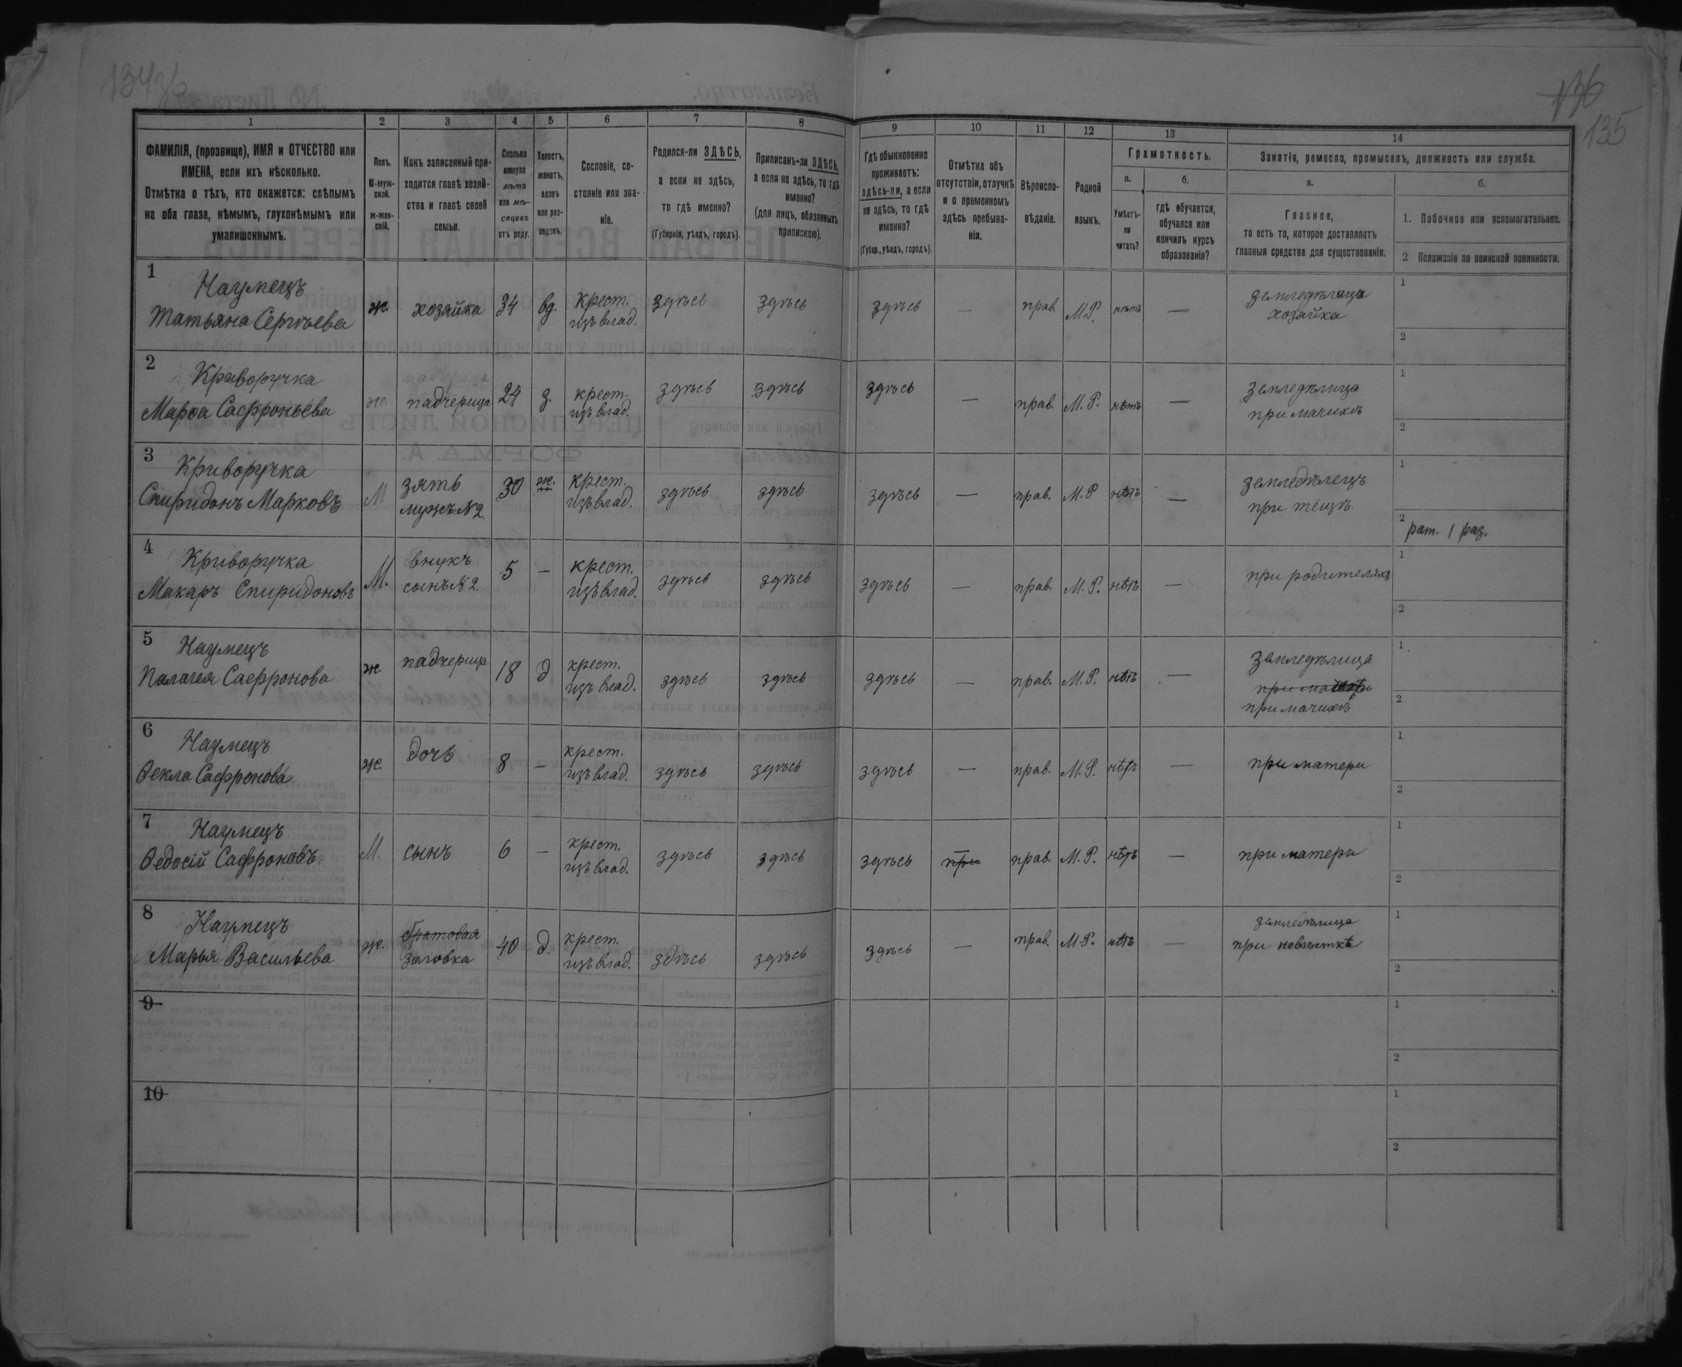 136
135
1
2
3
4
5
6
7
8
9
10
11
12
13
14
ФАМИЛІЯ, (прозвище), ИМЯ и ОТЧЕСТВО или
ИМЕНА, если ихъ нѣсколько.
Отмѣтка о тѣхъ, кто окажется: слѣпымъ
на оба глаза, нѣмымъ, глухонѣмымъ или
умалишеннымъ.
Полъ.
М-муж-
ской.
ж-жен-
скій.
Какъ записанный при-
ходится главѣ хозяй-
ства и главѣ своей
семьи.
Сколько
минуло
лѣтъ
или мѣ-
сяцевъ
отъ роду.
Холостъ,
женатъ,
вдовъ
или раз-
веденъ.
Сословіе, со-
стояніе или зва-
ніе.
Родился-ли ЗДѢСЬ,
а если не здѣсь,
то гдѣ именно?
(Губернія, уѣздъ, городъ).
Приписанъ-ли ЗДѢСЬ,
а если не здѣсь, то гдѣ
именно?
(для лицъ, обязанныхъ
припискою).
Гдѣ обыкновенно
проживаетъ:
здѣсь-ли, а если
не здѣсь, то гдѣ
именно?
(Губер., уѣздъ, городъ).
Отмѣтка объ
отсутствіи, отлучкѣ
и о временномъ
здѣсь пребыва-
ніи.
Вѣроиспо-
вѣданіе.
Родной
языкъ.
Грамотность.
а.
Умѣетъ-
ли
читать?
б.
гдѣ обучается,
обучался или
кончилъ курсъ
образованія?
Занятіе, ремесло, промыселъ, должность или служба.
а.
Главное,
то есть то, которое доставляетъ
главныя средства для существованія.
б.
1. Побочное или вспомогательное.
2 Положеніе по воинской повинности.
1
Наумецъ
Татьяна Сергѣева
ж
хозяйка
34
вд.
крест.
изъ влад.
здѣсь
здѣсь
здѣсь
—
прав.
М.Р.
нѣтъ
—
земледѣлица
хозяйка
1
2
2
Криворучка
Марѳа Сафроньева
ж.
падчерица
24
з.
крест.
изъ влад.
здѣсь
здѣсь
здѣсь
—
прав.
М.Р.
нѣтъ
—
земледѣлица
при мачихѣ
1
2
3
Криворучка
Спиридонъ Марковъ
М
зять
мужъ №2
30
ж.
крест.
изъ влад.
здѣсь
здѣсь
здѣсь
—
прав.
М.Р
нѣтъ
—
земледѣлецъ
при тещѣ
1
2
рат. 1 раз.
4
Криворучка
Макаръ Спиридоновъ
М.
внукъ
сынъ №2.
5
—
крест.
изъ влад.
здѣсь
здѣсь
здѣсь
—
прав.
М.Р.
нѣтъ
—
при родителяхъ
1
2
5
Наумецъ
Палагея Сафронова
ж
падчерица
18
д
крест.
изъ влад.
здѣсь
здѣсь
здѣсь
—
прав.
М.Р.
нѣтъ
—
земледѣлица
при мачихѣ
1
2
6
Наумецъ
Ѳекла Сафронова
ж.
дочь
8
—
крест.
изъ влад.
здѣсь
здѣсь
здѣсь
—
прав.
М.Р.
нѣтъ
—
при матери
1
2
7
Наумецъ
Ѳедосій Сафроновъ
М.
сынъ
6
—
крест.
изъ влад.
здѣсь
здѣсь
здѣсь
—
при
прав.
М.Р.
нѣтъ
—
при матери
1
2
8
Наумецъ
Марья Васильева
ж.
золовка
40
д.
крест.
изъ влад.
здѣсь
здѣсь
здѣсь
—
прав.
М.Р.
нѣтъ
—
земледѣлица
при невѣсткѣ
1
2
9
1
2
10
1
2